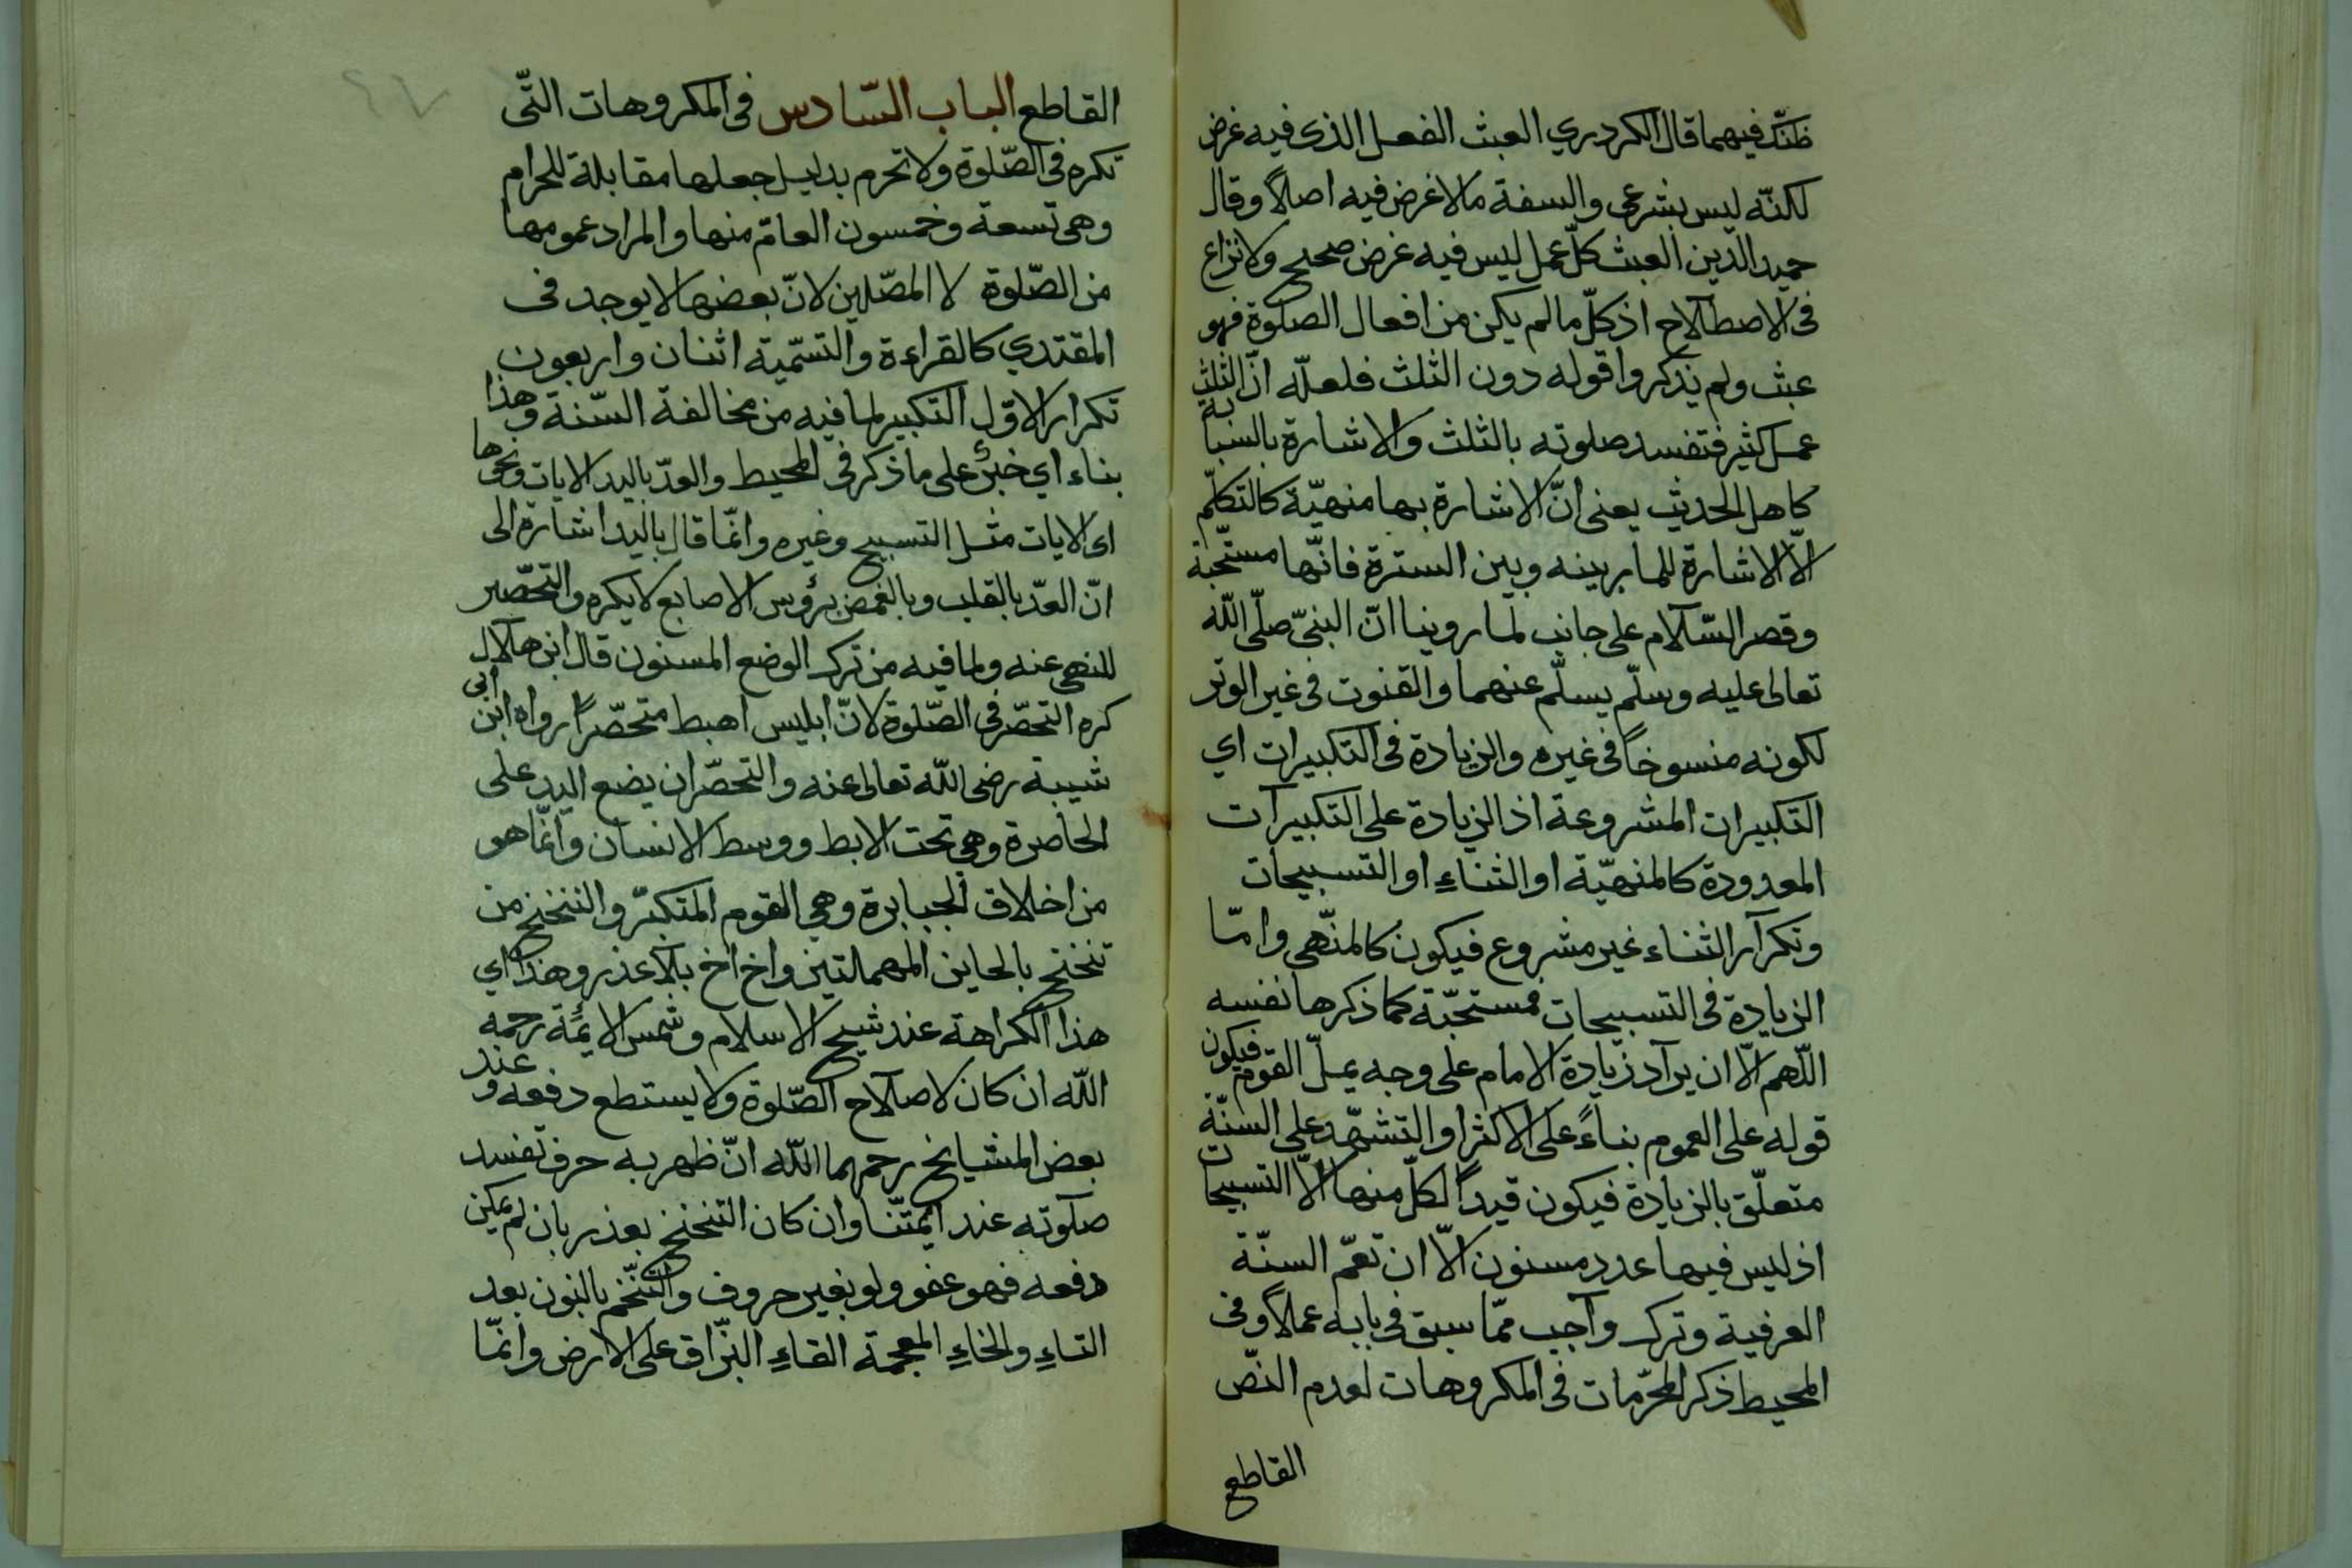 ظنّك فيهما قال الكردري العبث الفعل الذى فيه غرض
لكنّه ليس بشرعى والسفة مالا غرض فيه اصلاً وقال
حميد الدّين العبث كلّ عمل ليس فيه غرض صحيح ولا نزاع
فى الاصطلاح اذ كلّ مالم يكن من افعال الصلوة فهو
عبث ولم يذكروا قوله دون الثلث فلعلّه انّ الثلث
عمل كثير فتفسد صلوته بالثلث والاشارة بالسبابة
كاهل الحديث يعنى انّ الاشارة بها منهيّة كالتكلّم
الّا الاشارة للمار بينه وبين السترة فانّها مستحّبة
وقصر السّلام على جانب لما روينا انّ النبىّ صلّى اللّه
تعالى عليه وسلّم يسلّم عنهما والقنوت فى غير الوتر
لكونه منسوخاً فى غيره والزيادة فى التكبيرات اي
التكبيرات المشروعة اذ الزيادة على التكبيرات
المعدودة كالمنهيّة او الثناءِ او التسبيحات
وتكرار الثناء غير مشروع فيكون كالمنّهى وامّا
الزيادة فى التسبيحات فمستحّبة كما ذكرها نفسه
اللّهم الّا ان يراد زيادة الامام على وجه يملّ القوم فيكون
قوله على العموم بناءً على الاكثر او التشهّد على السنّة
متعلّق بالزيادة فيكون قيداً لكلّ منها الّا التسبيحات
اذ ليس فيها عدد مسنون الّا ان تعمّ السنّة
العرفية وترك واجب ممّا سبق فى بابه عملاً وفى
المحيط ذكر المحرّمات فى المكروهات لعدم النصّ
القاطع
القاطع الباب السّادس فى المكروهات التّى
تكره فى الصّلوة ولا تحرم بدليل جعلها مقابلة للحرام
وهى تسعة وخمسون العامّ منها والمراد عمومها
من الصّلوة لا المصّلين لانّ بعضها لا يوجد فى
المقتدي كالقراءة والتسّمية اثنان واربعون
تكرار الاوّل التكبير لما فيه من مخالفة السّنة وهذا
بناء اي خبرٌ على ما ذكر فى المحيط والعدّ باليد الايات ونحوها
اى الايات مثل التسبيح وغيره وانّما قال باليد اشارة الى
انّ العدّ بالقلب وبالغمض برؤس الاصابع لا يكره والتحصّر
للنهى عنه ولما فيه من ترك الوضع المسنون قال ابن هلال
كره التحصّر فى الصّلوة لانّ ابليس اهبط متحصّراً رواه ابن ابى
شيبة رضى اللّه تعالى عنه والتحصّر ان يضع اليد على
الخاصرة وهي تحت الابط ووسط الانسان وانّما هو
من اخلاق الجبابرة وهي القوم المتكبّر والتنحنح من
تنحنح بالحاين المهملتين واخ اخ بلا عذر وهذا اي
هذا الكراهة عند شيخ الاسلام وشمس الايمّة رحمه
اللّه ان كان لا صلاح الصّلوة ولا يستطع دفعه وعند
بعض المشيايخ رحمهما اللّه انّ ظهر به حرف تفسد
صلوته عند ايمّتنا وان كان التنحنح بعذر بان لم يمكن
دفعه فهو عفو ولو بغير حروف والتنّخم بالنون بعد
التاءِ والخاءِ المعجمة القاءِ البزّاق على الارض وانّما